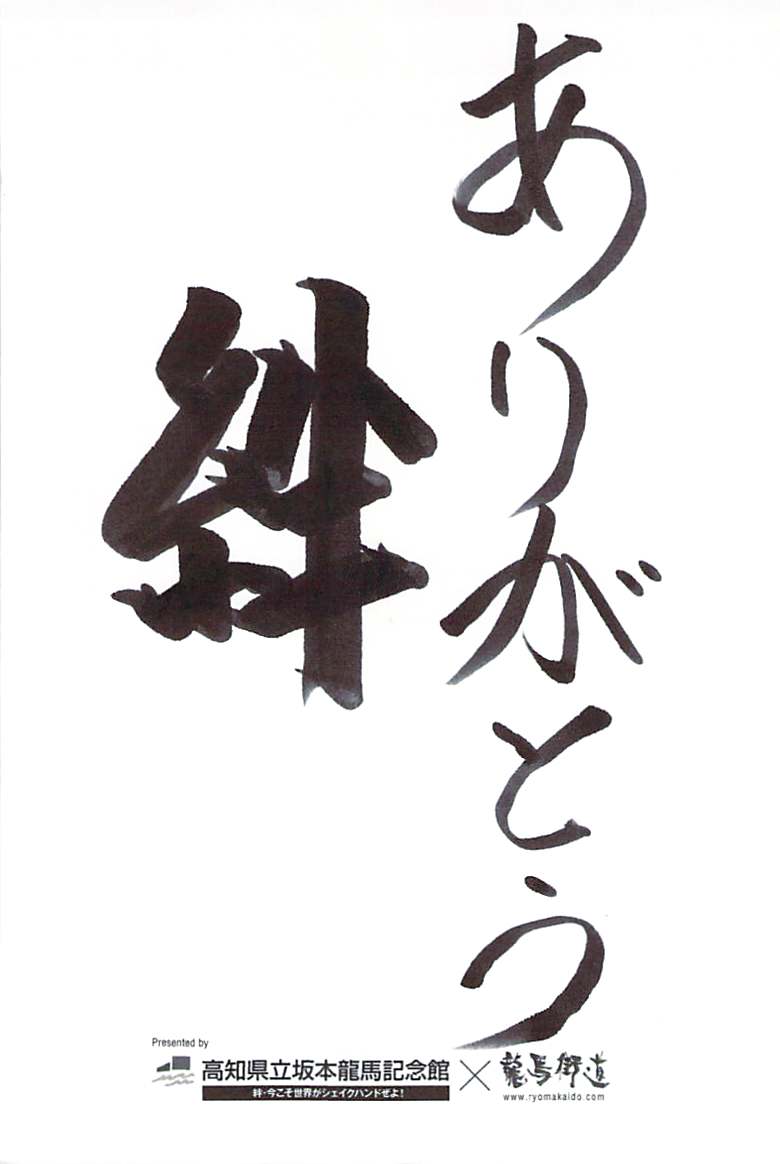 ありがとう
絆
Presented by
高知県立坂本龍馬記念館 × 龍馬街道
絆・今こそ世界がシェイクハンドぜよ!
www.ryomakaido.com